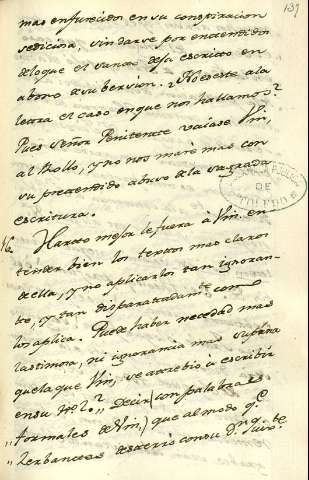 139
mas enfurecidos en su conspiracion
sediciosa, sin darse por entendidos
de lo que el Santo dexa escrito en
abono de su version. ¿No es este a la
letra el caso en que nos hallamos?
Pues Señor Penitente vaiase Vm,
al Rollo, y no nos maree mas con
su pretendido abuso de la sagrada
escritura.
16. Harto mejor le fuera à Vm. en
tender bien los textos mas claros
de ella, y no aplicarlos tan ignoran-
te, y tan disparatadamte. como
los aplica. Puede haber necedad mas
lastimosa, ni ignorancia mas supina
que la que Vm, se atrebiò à escribir
en su
„ Decir (con palabras
„ formales de Vm,) que al modo qe.